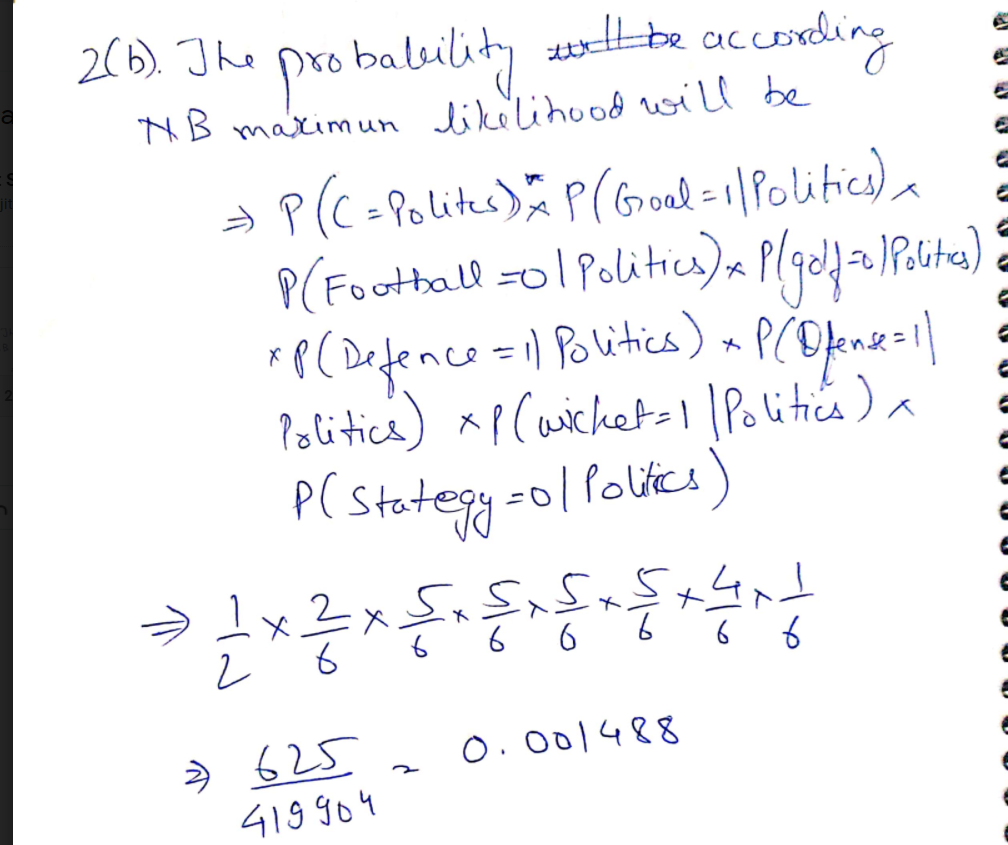 2(b). The probability will be according
NB maximun likelihood will be
⇒ P(C = Polites) × P(Goal = 1 | Politics) ×
P(Football = 0 | Politics) × P(golf = 0 | Politics)
× P(Defence = 1 | Politics) × P(Ofense = 1 |
Politics) × P(wicket = 1 | Politics) ×
P(Stategy = 0 | Politics)
⇒ 1/2 × 2/6 × 5/6 × 5/6 × 5/6 × 5/6 × 4/6 × 1/6
⇒ 625/419904 = 0.001488